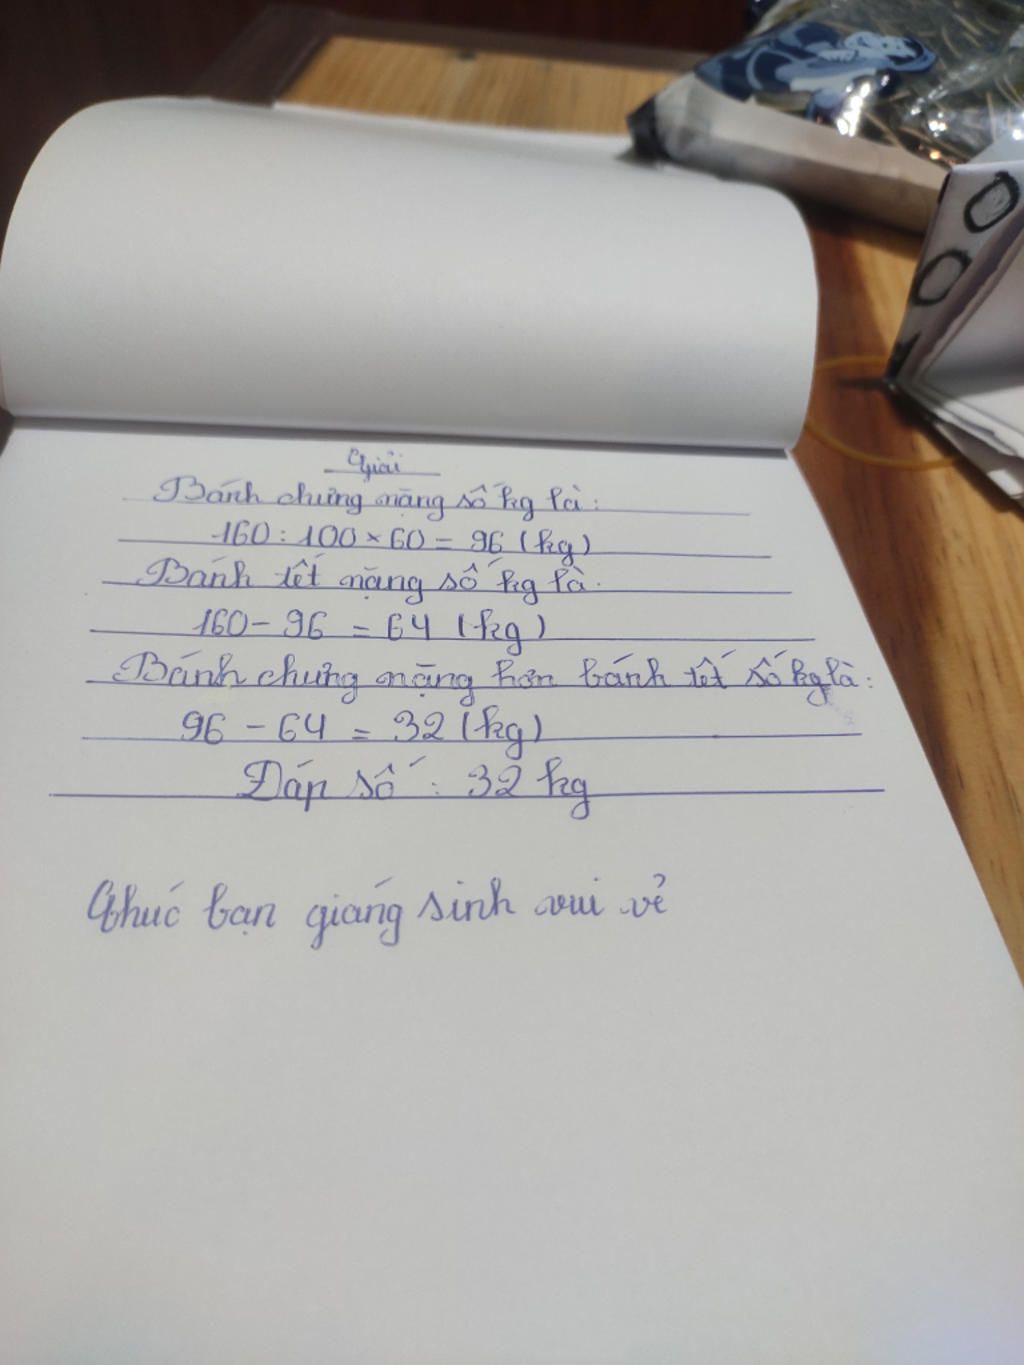 Giải
Bánh chưng nặng số kg là:
160 : 100 × 60 = 96 (kg)
Bánh tết nặng số kg là.
160 - 96 = 64 (kg)
Bánh chưng nặng hơn bánh tết số kg là:
96 - 64 = 32 (kg)
Đáp số : 32 kg
Chúc bạn giáng sinh vui vẻ